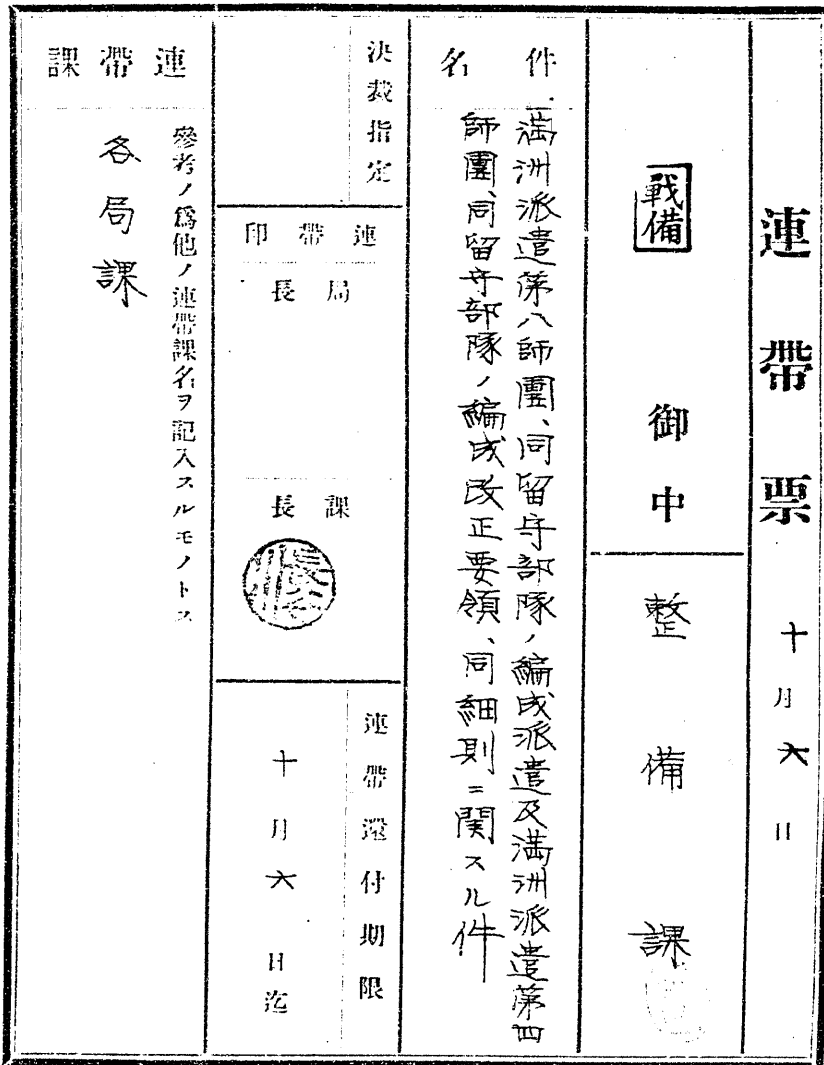 連帶票 十月六日
戦備 御中
整備課
件名
満洲派遣第八師團、同留守部隊ノ編成派遣及満洲派遣第四
師團、同留守部隊ノ編成改正要領、同細則ニ関スル件
決裁指定
連帶印
局長
課長
連帶還付期限
十月六日迄
連帶課
參考ノ爲他ノ連帶課名ヲ記入スルモノトス
各局課